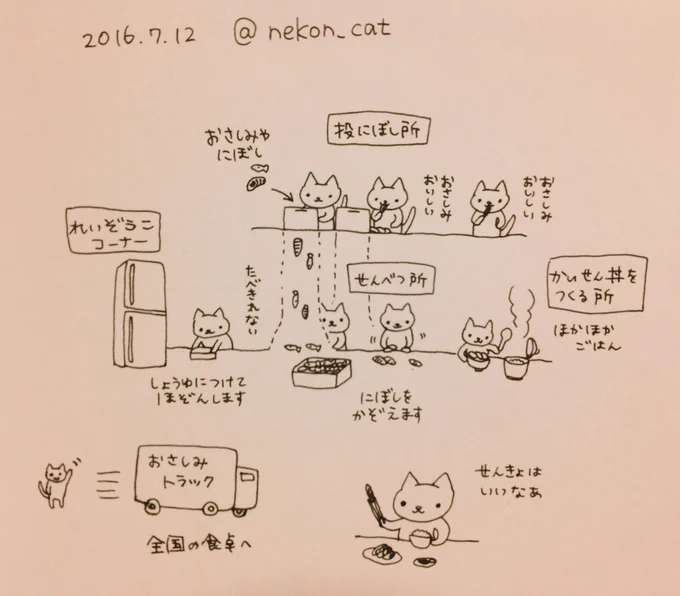 2016.7.12 @nekon_cat
投にぼし所
おさしみや
にぼし
おさしみ
おいしい
おさしみ
おいしい
れいぞうこ
コーナー
たべきれない
せんべつ所
かいせん丼を
つくる所
ほかほか
ごはん
しょうゆにつけて
ほぞんします
にぼしを
かぞえます
おさしみ
トラック
全国の食卓へ
せんきょは
いいなあ